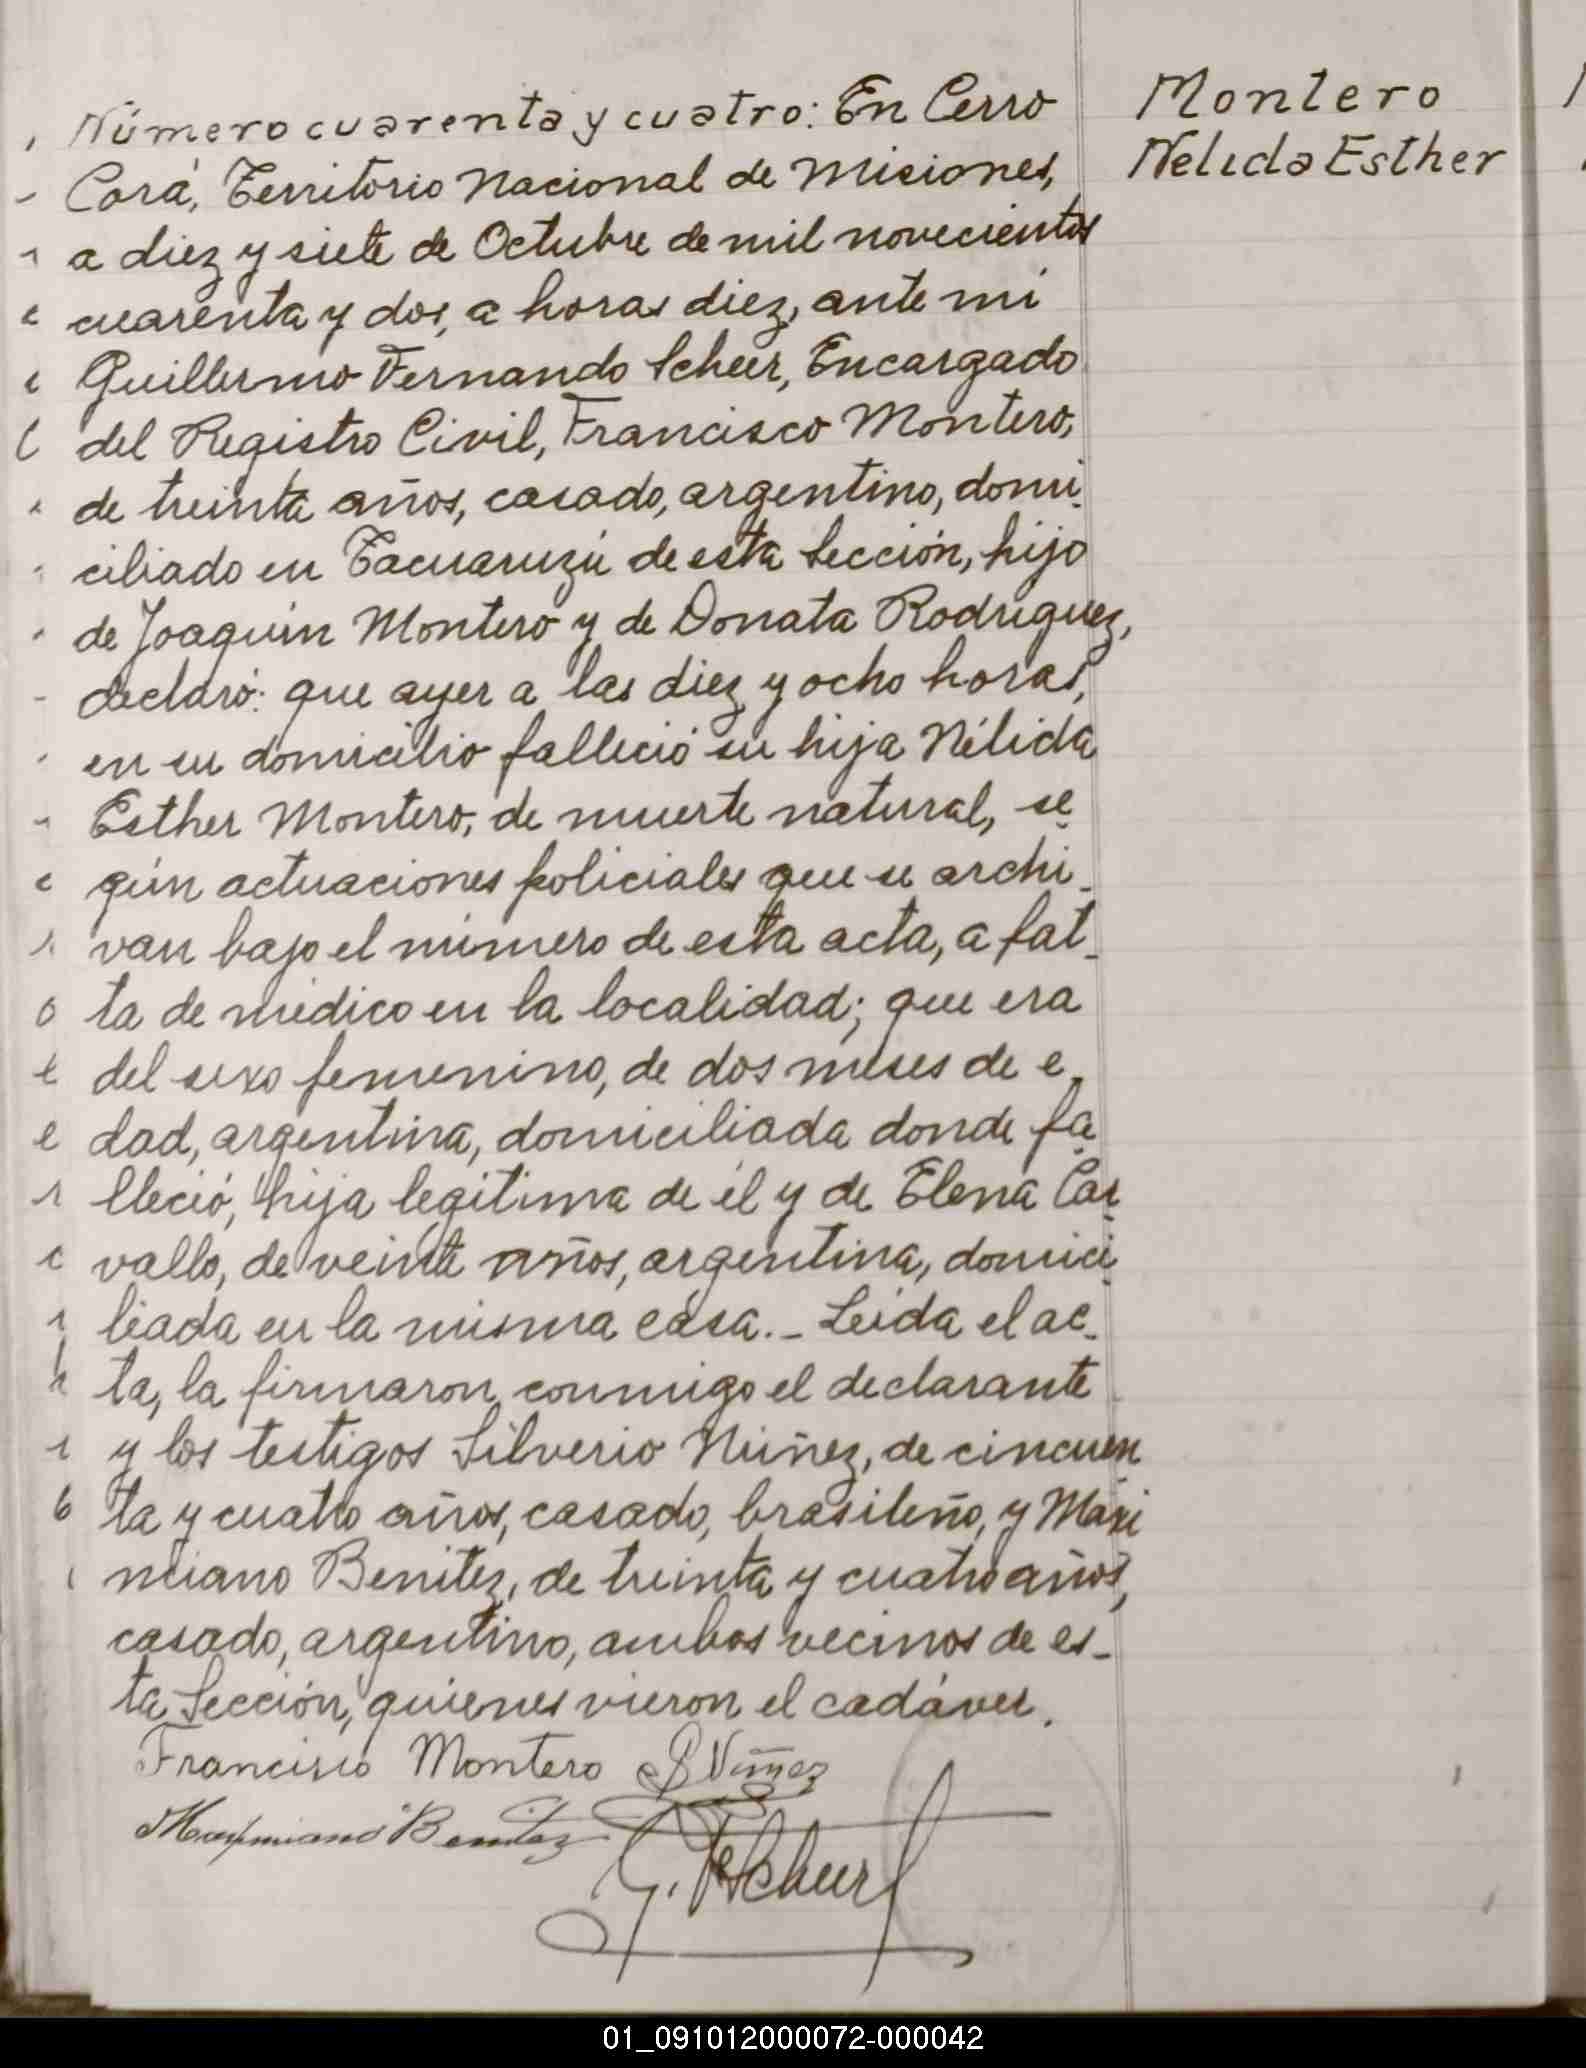 Número cuarenta y cuatro: En Cerro
Corá, Territorio Nacional de Misiones,
a diez y siete de Octubre de mil novecientos
cuarenta y dos, a horas diez, ante mí
Guillermo Fernando Scheer, Encargado
del Registro Civil, Francisco Montero,
de treinta años, casado, argentino, domi-
ciliado en Tacuaruzú de esta Sección, hijo
de Joaquín Montero y de Donata Rodríguez,
declaró: que ayer a las diez y ocho horas,
en su domicilio falleció su hija Nélida
Esther Montero, de muerte natural, se-
gún actuaciones policiales que se archi-
van bajo el número de esta acta, a fal-
ta de médico en la localidad; que era
del sexo femenino, de dos meses de e-
dad, argentina, domiciliada donde fa-
lleció, hija legítima de él y de Elena Car-
vallo, de veinte años, argentina, domici-
liada en la misma casa.- Leída el ac-
ta, la firmaron conmigo el declarante
y los testigos Silverio Núñez, de cincuen-
ta y cuatro años, casado, brasileño, y Maxi
miano Benitez, de treinta y cuatro años,
casado, argentino, ambos vecinos de es-
ta Sección, quienes vieron el cadáver.
Francisco Montero S Nuñez
Maxymiano Benitez
G. F Scheer
Montero
Nelida Esther
01_091012000072-000042